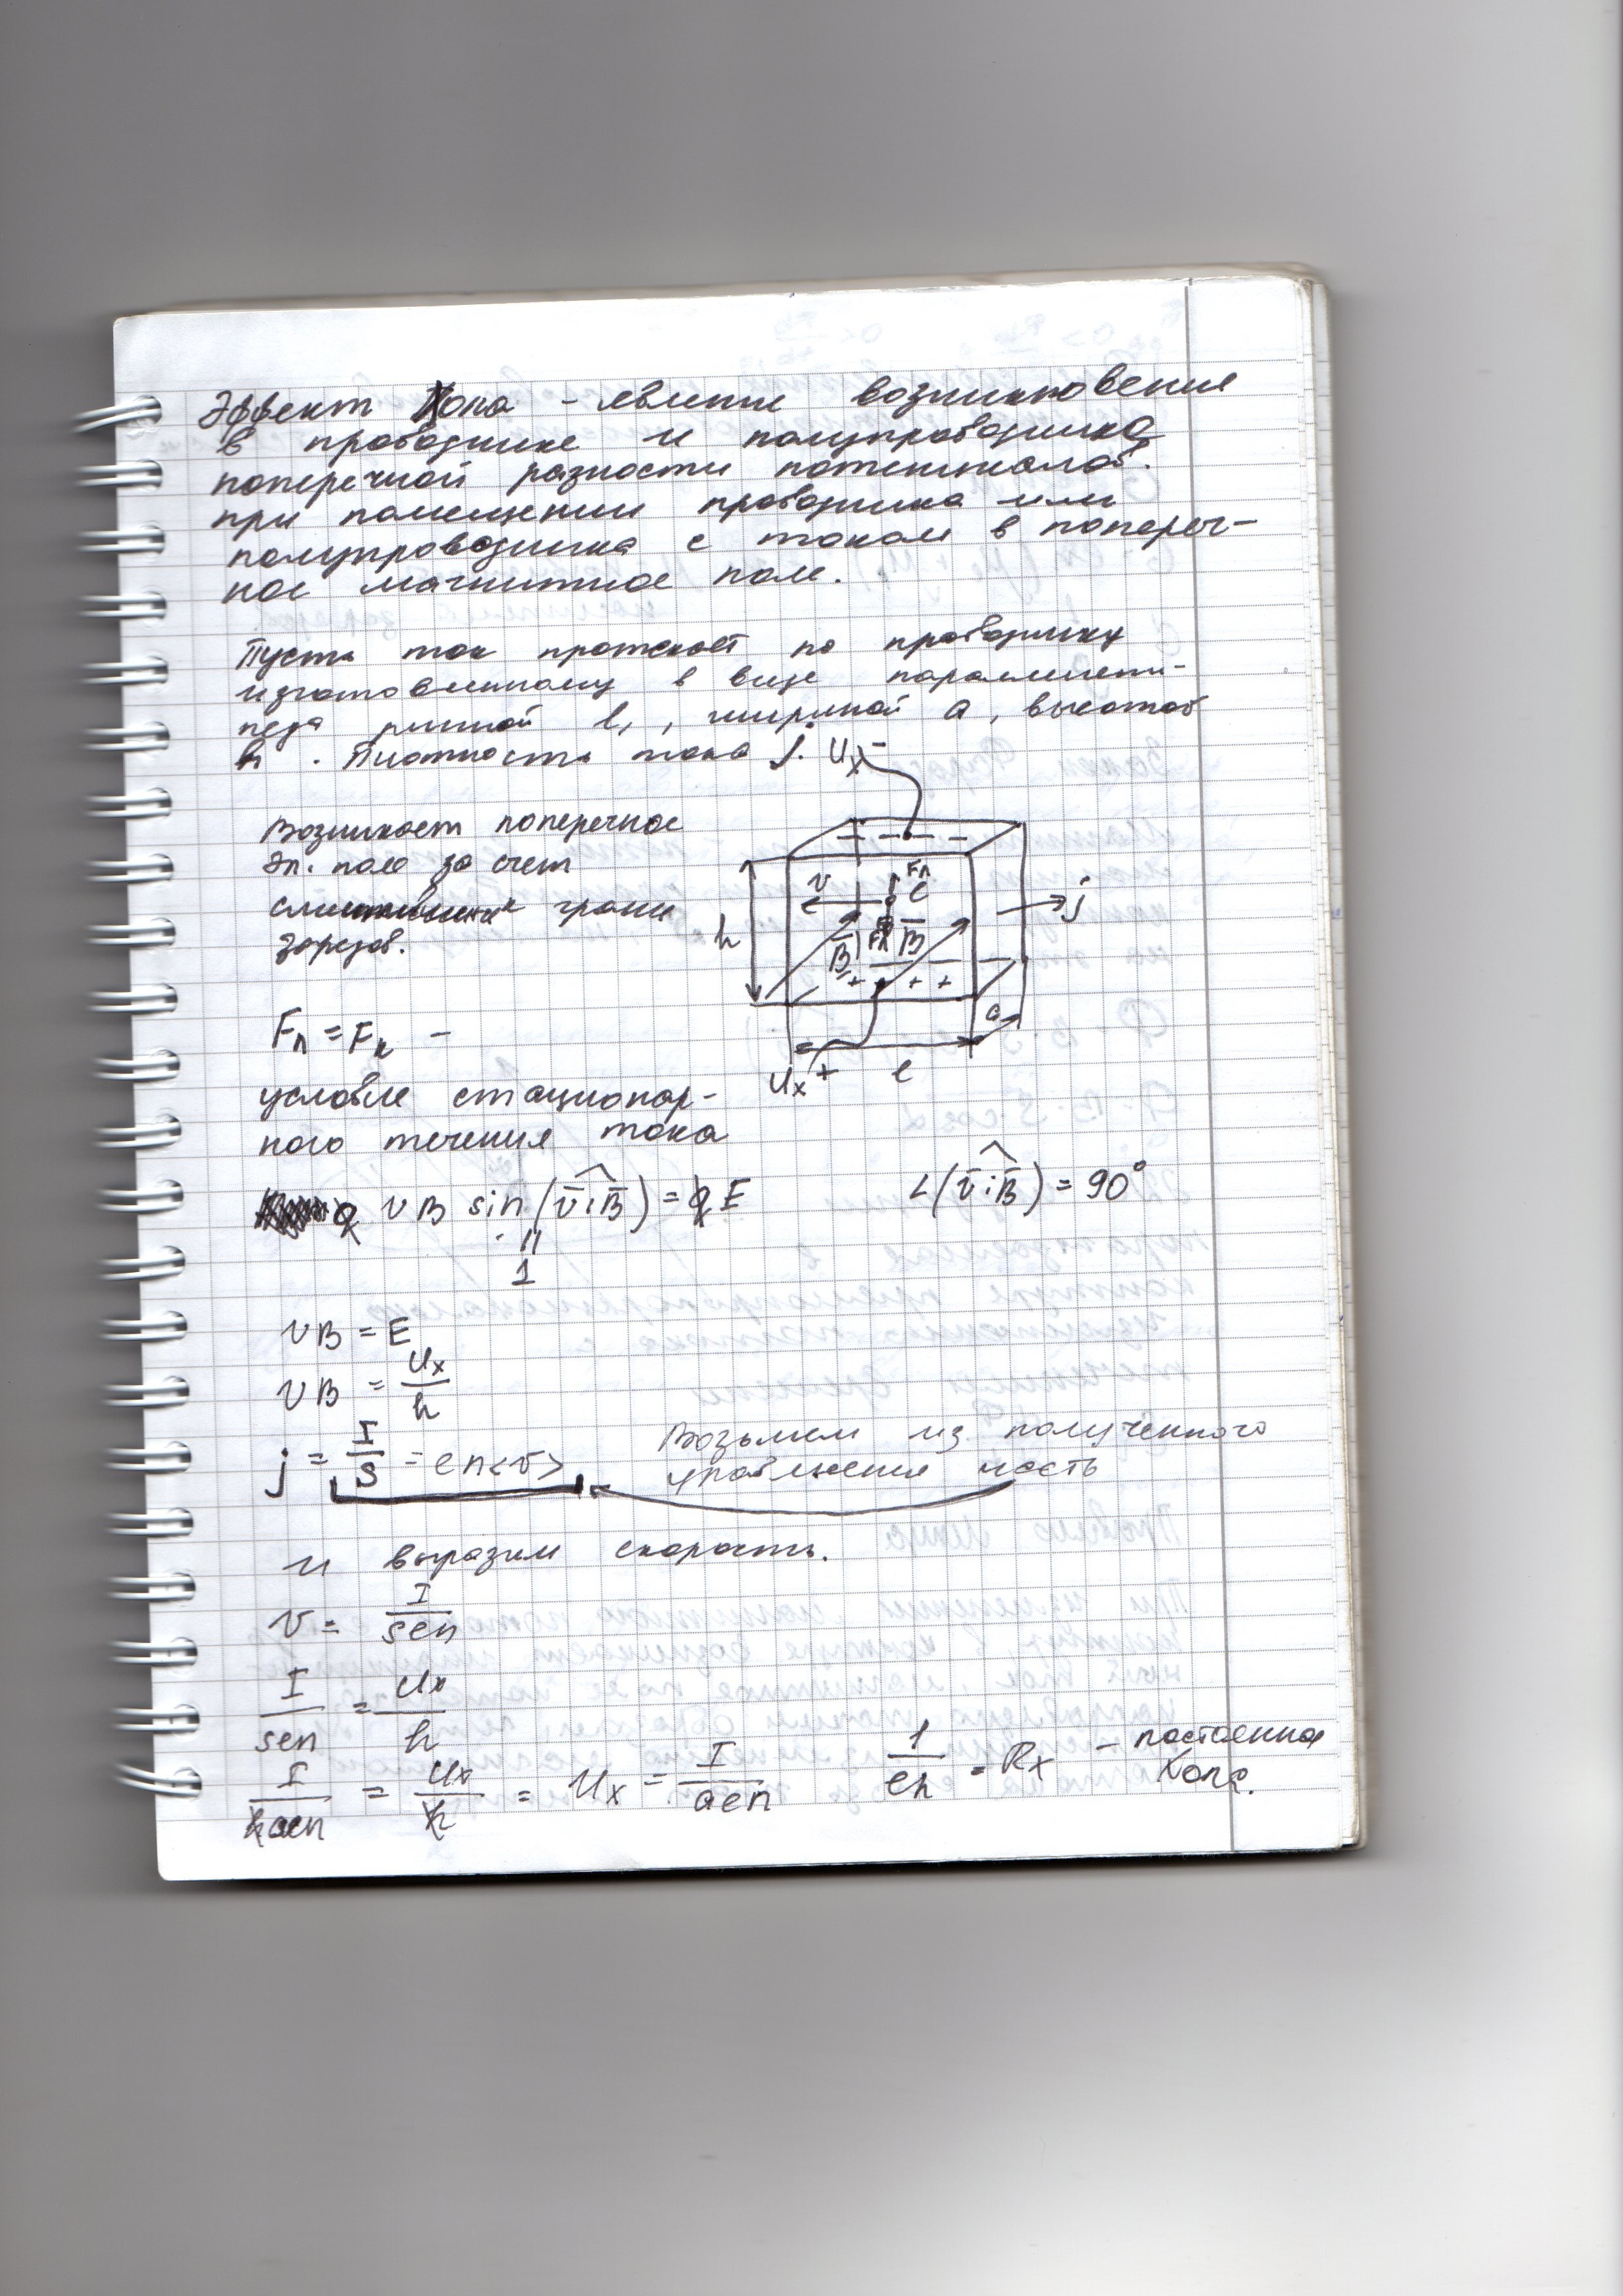 Эффект Хола - явление возникновения
в проводнике и полупроводнике
поперечной разности потенциалов.
при помещении проводника или
полупроводника с током в попереч-
ное магнитное поле.
Пусть ток протекает по проводнику
изготовленному в виде параллелепи-
педа длиной l, , шириной a, высотой
h . Плотность тока j.
Ux-
Возникает поперечное
эл. поле за счет
грани
зарядов.
v Fл e
j
h
B Fл B
+ + + +
a
Ux+ l
Fл = Fк -
условие стационар-
ного течения тока
q v B sin (v̄ ; B̄) = q E
∠(v̄ ; B̄) = 90°
1
vB = E
vB = Ux/h
j = I/S = en<v>
Возьмем из полученного
уравнения часть
и выразим скорость.
v = I/sen
I/sen = Ux/h
I/haen = Ux/h = Ux = I/aen 1/en = Rx - постоянная
Холла.